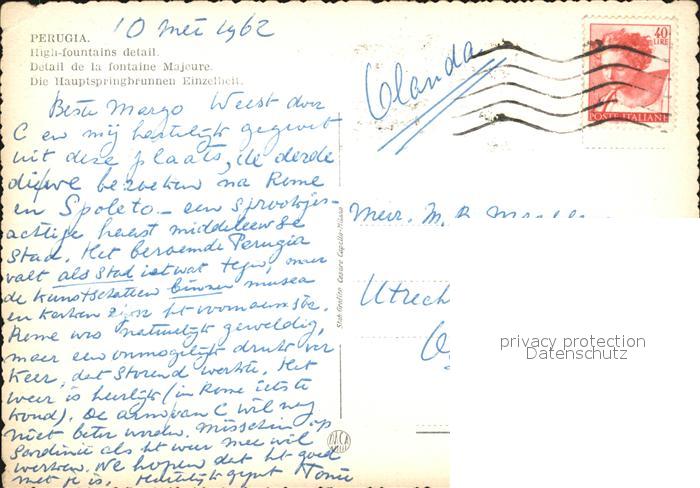 PERUGIA.
High-fountains detail.
Detail de la fontaine Majeure.
Die Hauptspringbrunnen Einzelheit.
10 mei 1962
Beste Margo Weest door
C en mij hartelijk gegroet
uit deze plaats, de derde
die we bezoeken na Rome
en Spoleto - een sprookjes-
achtige haast middeleeuwse
stad. Het beroemde Perugia
valt als stad iet wat tegen, maar
de kunstschatten binnen musea
en kerken zijn het voornaamste.
Rome was natuurlijk geweldig,
maar een onmogelijk druk ver
keer, dat storend werkte. Het
weer is heerlijk (in Rome iets te
koud). De arm van C wil nog
niet beter worden. Misschien op
Sardinië als het weer mee wil
werken. We hopen dat het goed
met je is. Hartelijk gegroet Tonie
Olanda
40
LIRE
POSTE ITALIANE
Mevr. M.
Utrech
Stab. Grafico Cesare Capello - Milano
privacy protection
Datenschutz